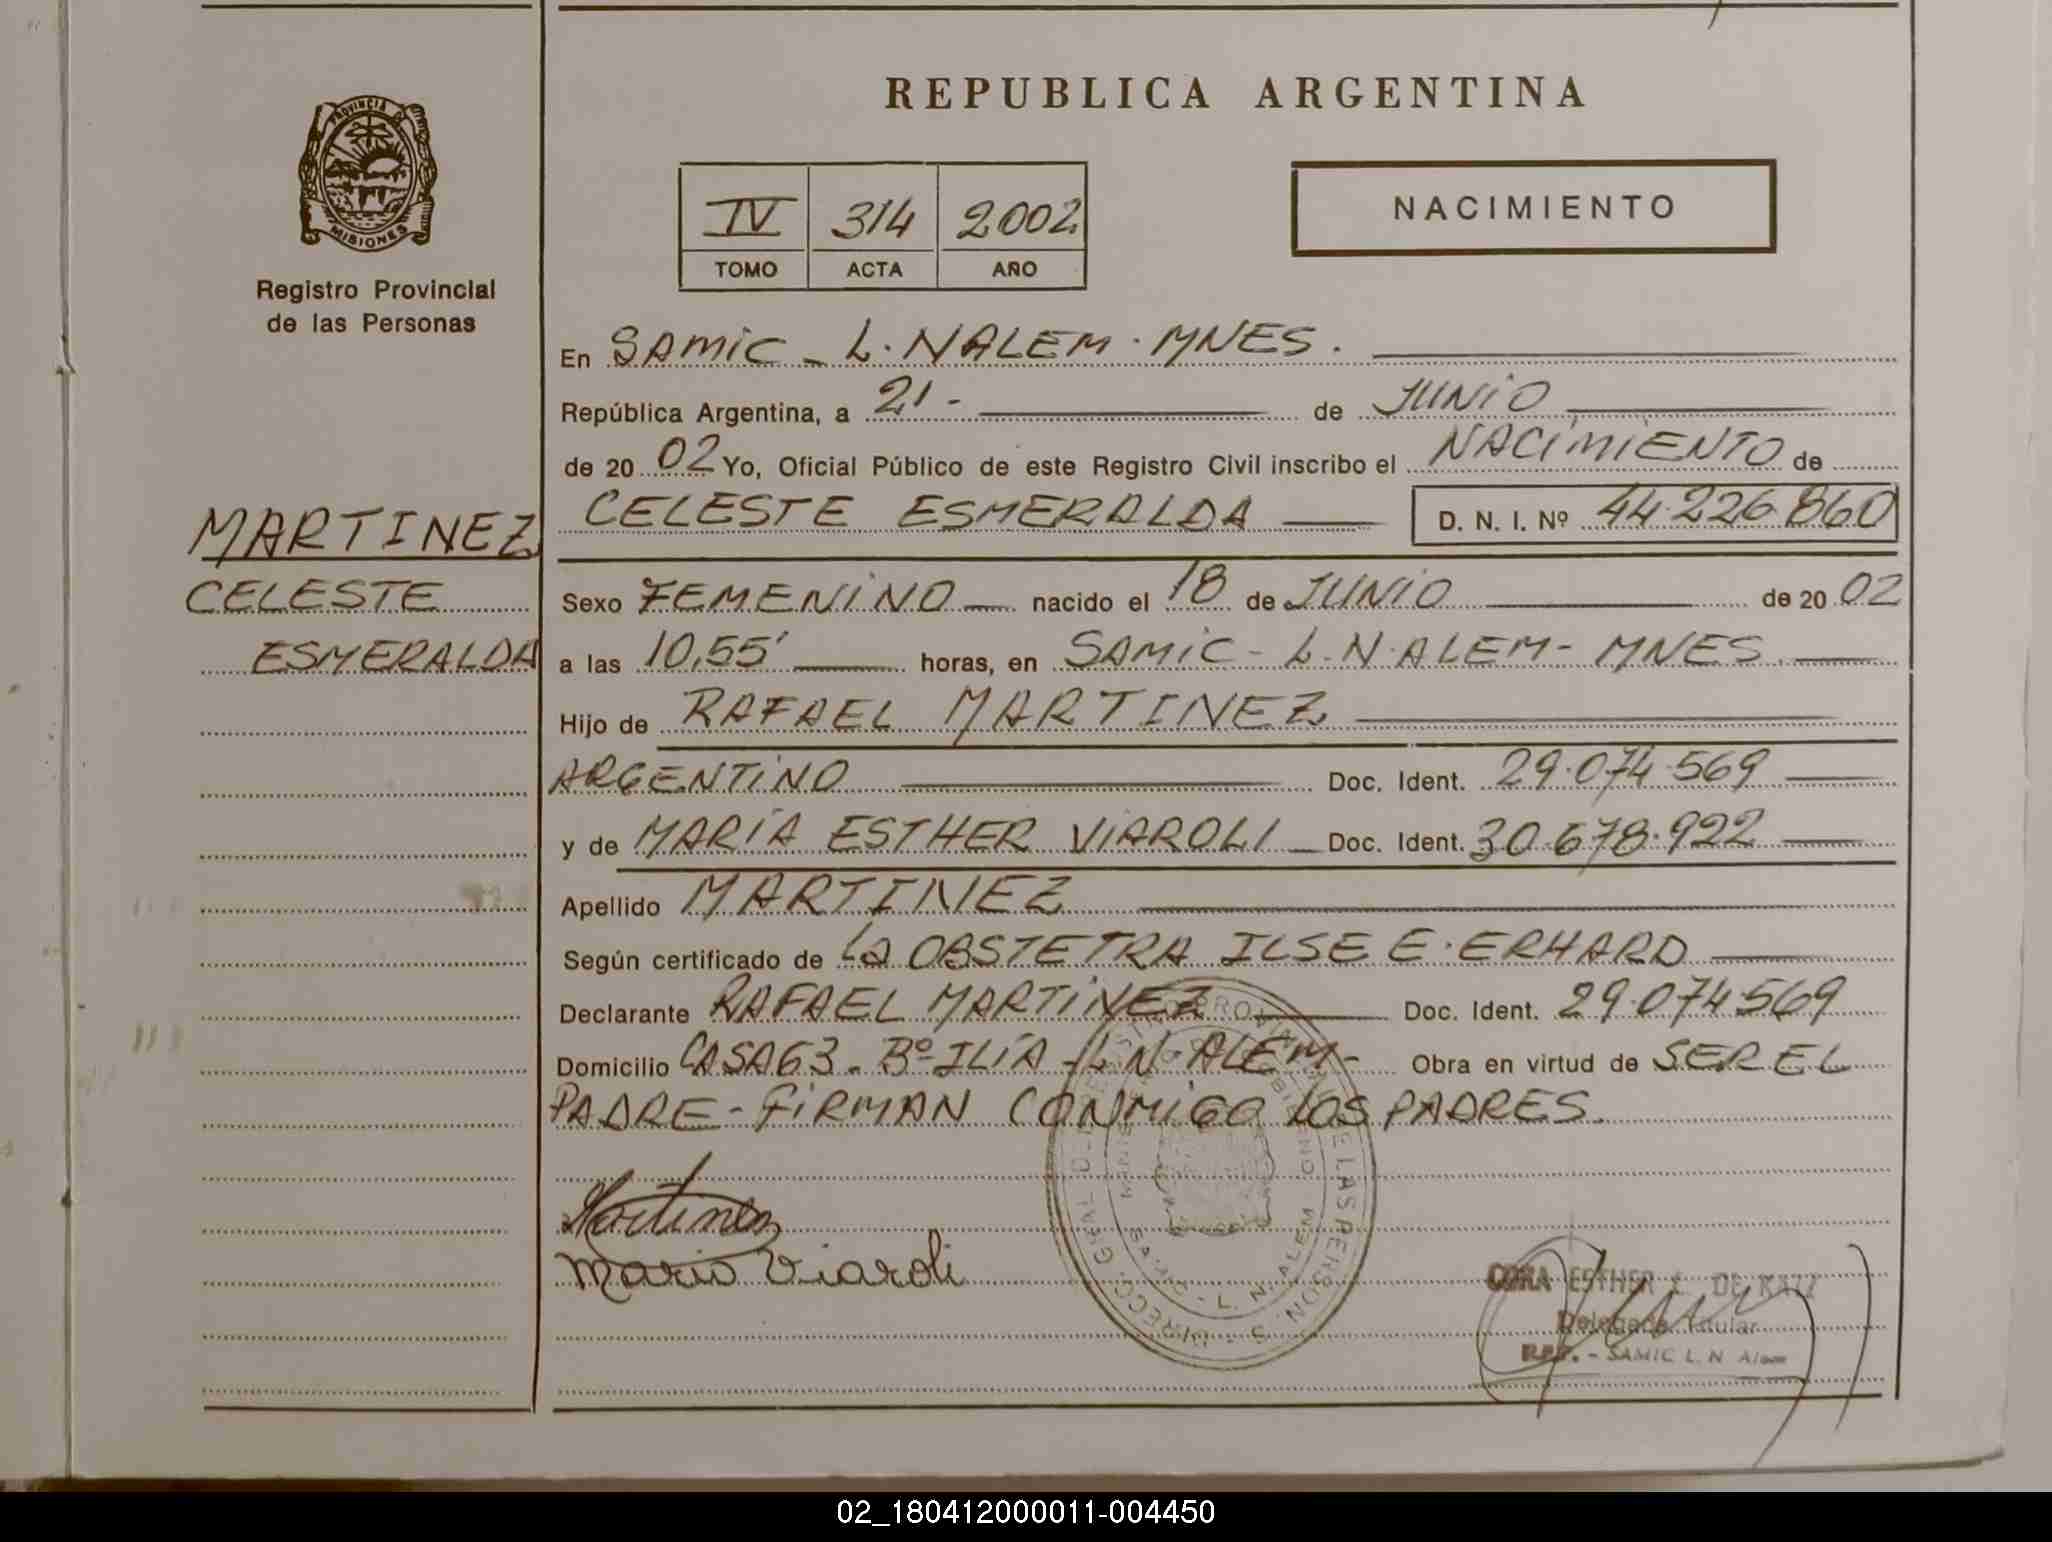 REPUBLICA ARGENTINA
PROVINCIA DE
MISIONES
Registro Provincial
de las Personas
IV 314 2002
TOMO ACTA AÑO
NACIMIENTO
En SAMIC - L. N ALEM - MNES.
República Argentina, a 21 - de JUNIO
de 20 02 Yo, Oficial Público de este Registro Civil inscribo el NACIMIENTO de
CELESTE ESMERALDA D. N. I. Nº 44.226.860
MARTINEZ
CELESTE
ESMERALDA
Sexo FEMENINO nacido el 18 de JUNIO de 20 02
a las 10,55' horas, en SAMIC - L. N. ALEM - MNES.
Hijo de RAFAEL MARTINEZ
ARGENTINO Doc. Ident. 29.074.569
y de MARÍA ESTHER VIAROLI Doc. Ident. 30.678.922
Apellido MARTINEZ
Según certificado de La OBSTETRA ILSE E. ERHARD
Declarante RAFAEL MARTINEZ Doc. Ident. 29.074.569
Domicilio CASA 63. Bº ILÍA - L. N. ALEM - Obra en virtud de SER EL
PADRE - FIRMAN CONMIGO LOS PADRES.
Martinez
Maria Viaroli
CORA ESTHER Z. DE KATZ
Delegada Titular
R.P.P. - SAMIC L. N Alem
02_180412000011-004450